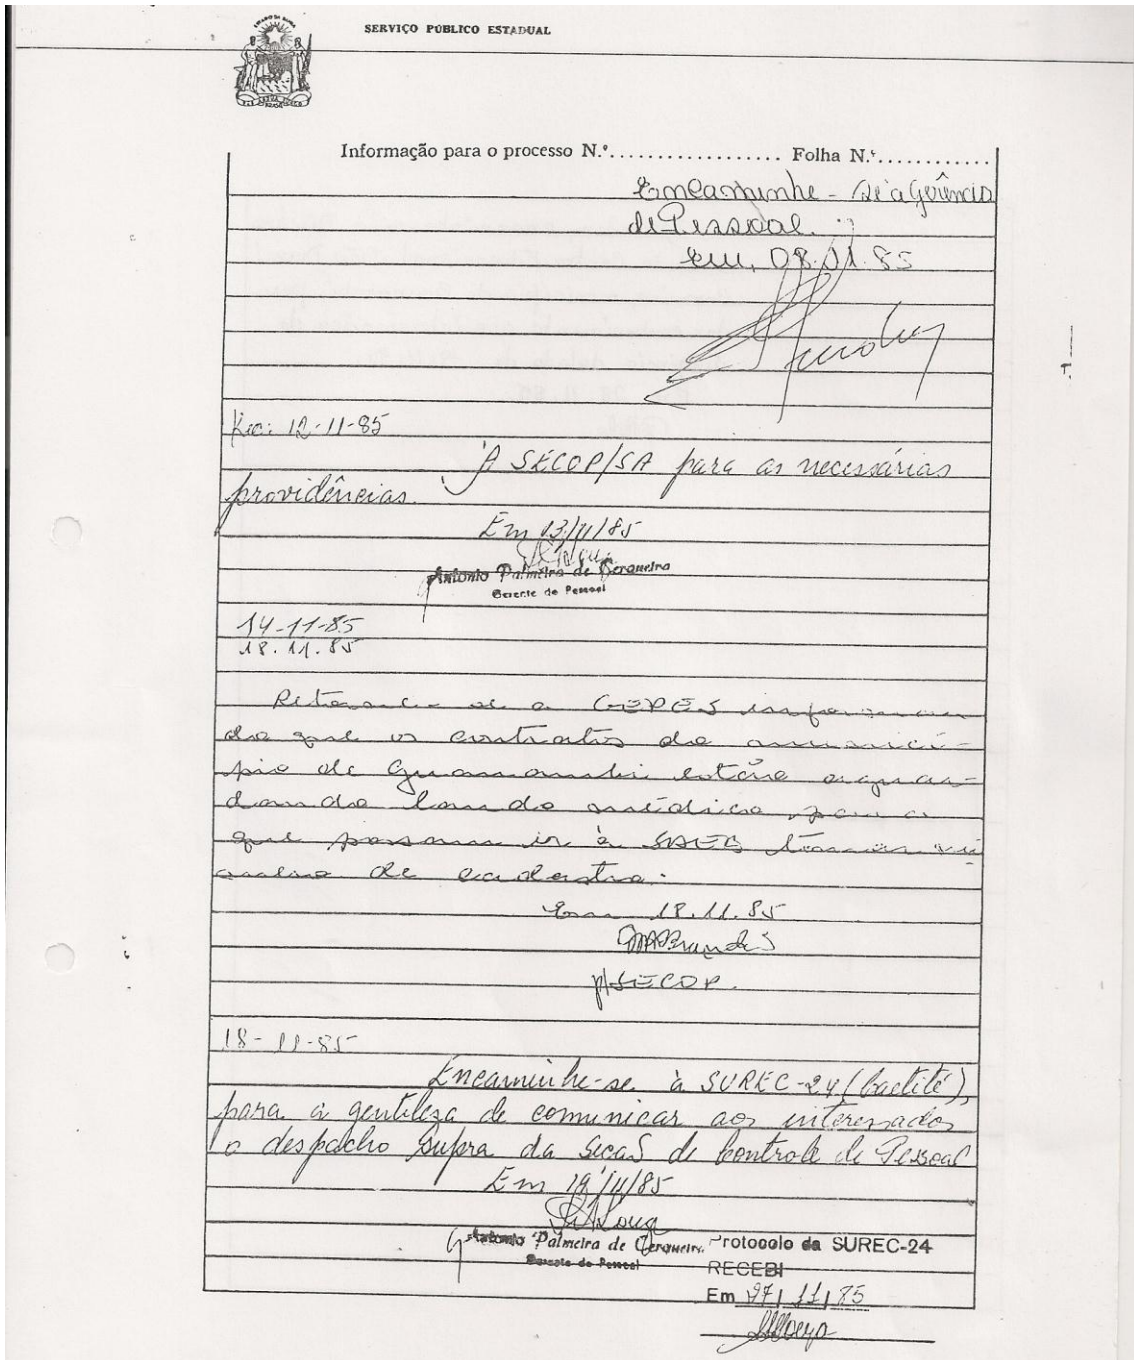 SERVIÇO PÚBLICO ESTADUAL
Informação para o processo N.º................... Folha N.º............
Encaminhe-se à Gerência
de Pessoal.
em, 08.11.85
Rec: 12-11-85
À SECOP/SA para as necessárias
providências.
Em 13/11/85
Antonio Palmeira de Cerqueira
Gerente de Pessoal
14-11-85
18.11.85
Retorne-se a GEPES informan
do que os contratos do municí-
pio de Guanambi estão aguar-
dando laudo médico para
que possam ir à SAEB
de cadastro.
Em 18.11.85
p/SECOP.
18-11-85
Encaminhe-se à SUREC-24 (Caetité),
para a gentileza de comunicar aos interessados
o despacho supra da Seção de Controle de Pessoal
Em 19/11/85
Antonio Palmeira de Cerqueira
Gerente de Pessoal
Protocolo da SUREC-24
RECEBI
Em 27/11/85